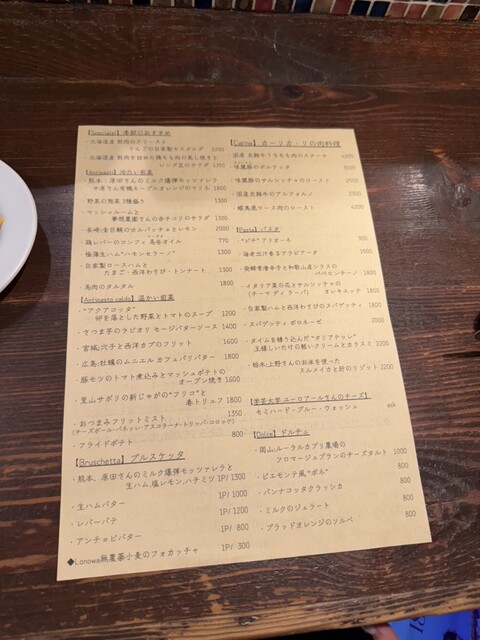 【Speciale】季節のおすすめ
・北海道産 熊肉のテリーヌと
りんごの自家製モスタルダ 2200
・北海道産 熊肉を詰めた鶏もも肉の蒸し焼きと
レンズ豆のサラダ 1350
【Antipasti】冷たい前菜
・熊本・原田さんのミルク爆弾モッツァレラ
オレンジのマリネ 1800
・野菜の惣菜 3種盛り 1300
・マッシュルームと
赤チコリのサラダ 1300
・長崎:金目鯛のカルパッチョとレモン 2000
・鶏レバーのコンフィ オイル 770
・極薄生ハム"ハモンセラーノ" 1300
・自家製ロースハムと
たまご・西洋わさび・トンナート 1300
・馬肉のタルタル 1800
【Antipasto caldo】温かい前菜
・"アクアコッタ"
卵を落とした野菜とトマトのスープ 1200
・さつま芋のラビオリ セージバターソース 1400
・宮城:穴子と西洋カブのフリット 1600
・広島:牡蠣のムニエル カフェパリバター 1800
・豚モツのトマト煮込みとマッシュポテトの
オーブン焼き 1600
・里山サポリの新じゃがの"フリコ"と
春トリュフ 1800
・おつまみフリットミスト 1350
(チーズボール・パネッレ・アスコラーナ・トリッパ・コロッケ)
・フライドポテト 800
【Bruschetta】ブルスケッタ
・熊本、原田さんのミルク爆弾モッツァレラと
生ハム,塩レモン,ハチミツ 1P/ 1300
・生ハムバター 1P/ 1000
・レバーパテ 1P/ 1200
・アンチョビバター 1P/ 800
◆Lonowa無農薬小麦のフォカッチャ 1P/ 300
【Carne】カーリカ・リの肉料理
・国産 北 牛うちもも肉のステーキ 4200
・豚のポルペッタ 3500
・豚のサルシッチャのロースト 2500
・国産 牛のアルフォルノ 3300
・蝦夷鹿ロース肉のロースト 4200
【Pasta】パスタ
・"ピチ"アリオーネ 900
・海老出汁香るアラビアータ 1600
・発酵青唐辛子と和歌山産シラスの
ペペロンチーノ 1800
・イタリア菜の花とサルシッチャの
(チーマ ディ ラーパ) オレキエッテ 1800
・自家製ハムと西洋わさびのスパゲッティ 1800
・スパゲッティ ボロネーゼ 2000
・タイムを練り込んだ"タリアテッレ"
玉様しいたけの軽いクリームとカラスミ 2200
・栃木:上野さんのお米を使った
スルメイカと肝のリゾット 2200
【学芸大学ユーロアールさんのチーズ】
セミハード・ブルー・ウォッシュ ask
【Dolce】ドルチェ
・岡山,ルーラルカプリ農場の
フロマージュブランのチーズタルト 1000
・ピエモンテ風"ボネ" 800
・パンナコッタクラシッカ 800
・ミルクのジェラート 800
・ブラッドオレンジのソルベ 800